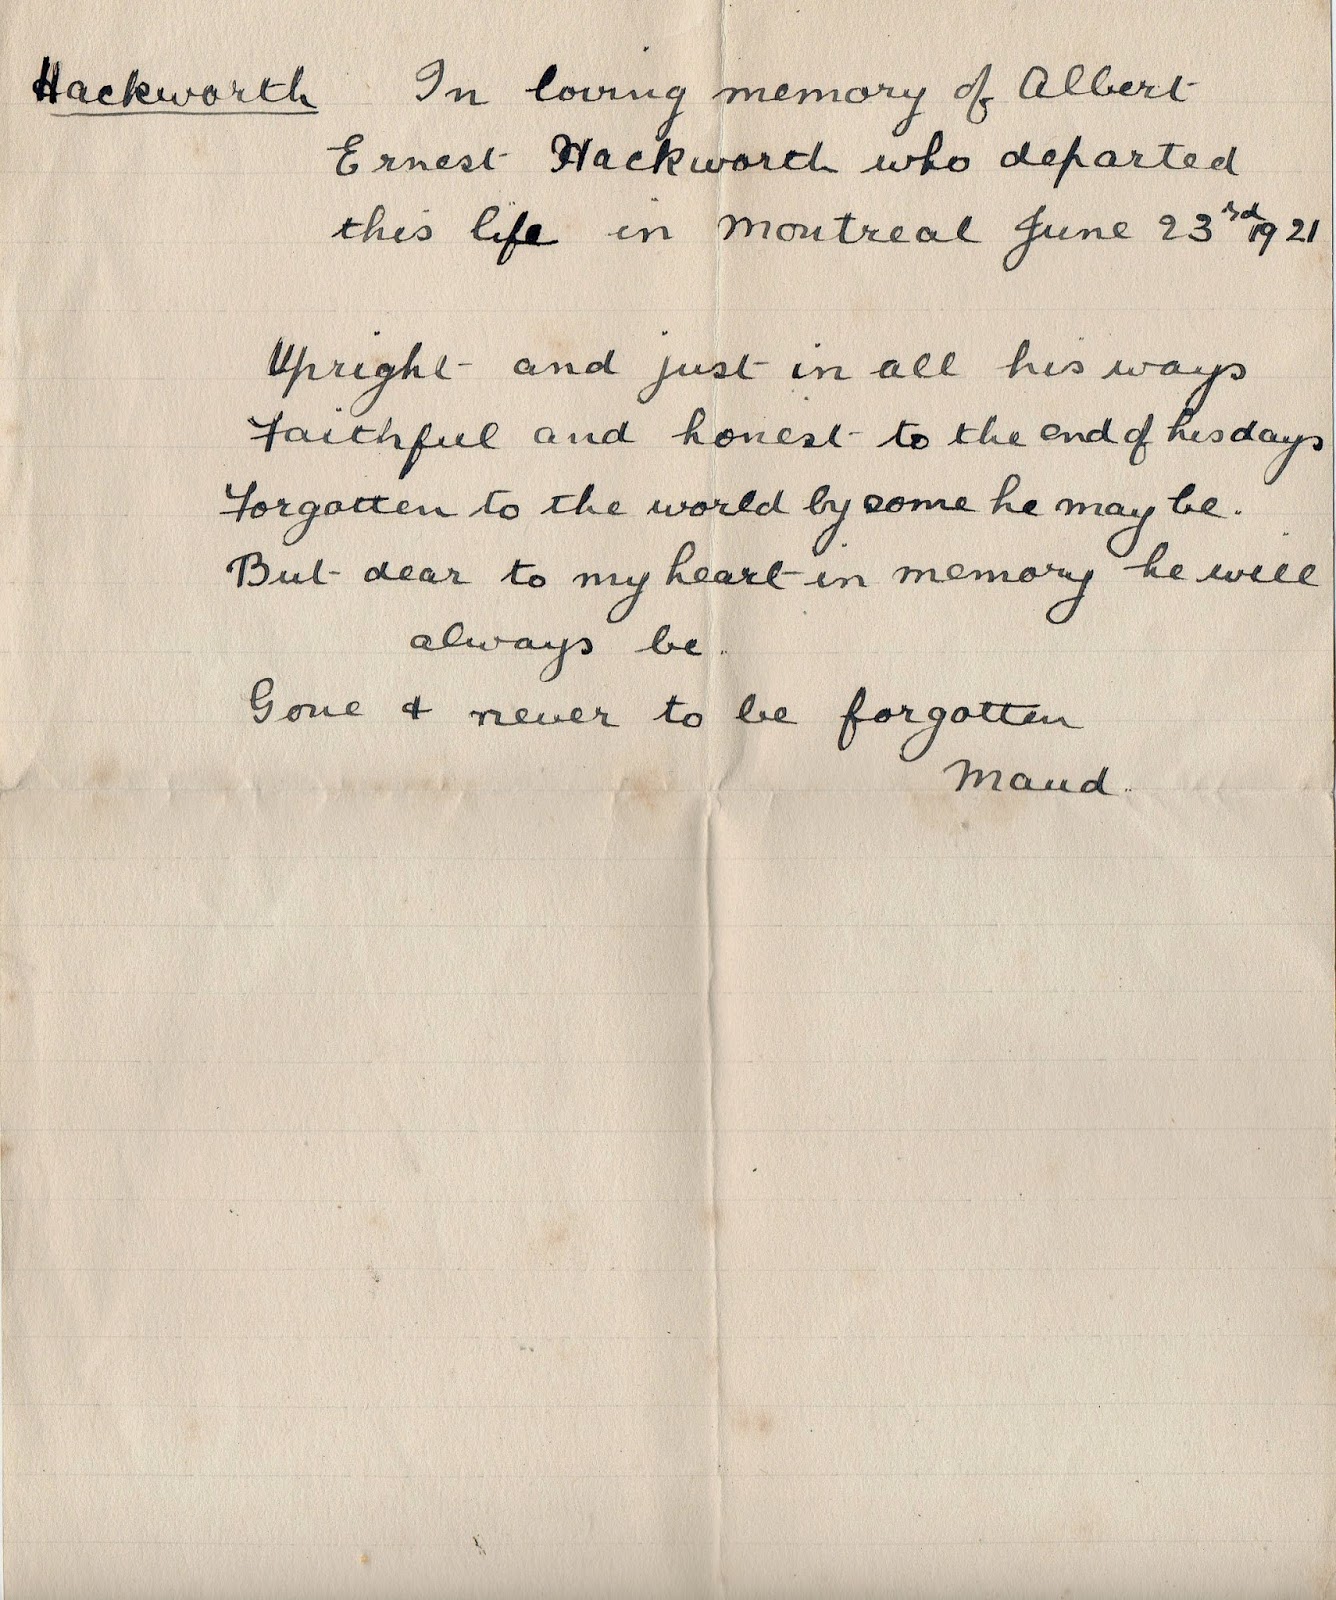 Hackworth In loving memory of Albert
Ernest Hackworth who departed
this life in Montreal June 23rd 1921
Upright and just in all his ways
Faithful and honest to the end of his days
Forgotten to the world by some he may be.
But dear to my heart in memory he will
always be.
Gone & never to be forgotten
Maud.